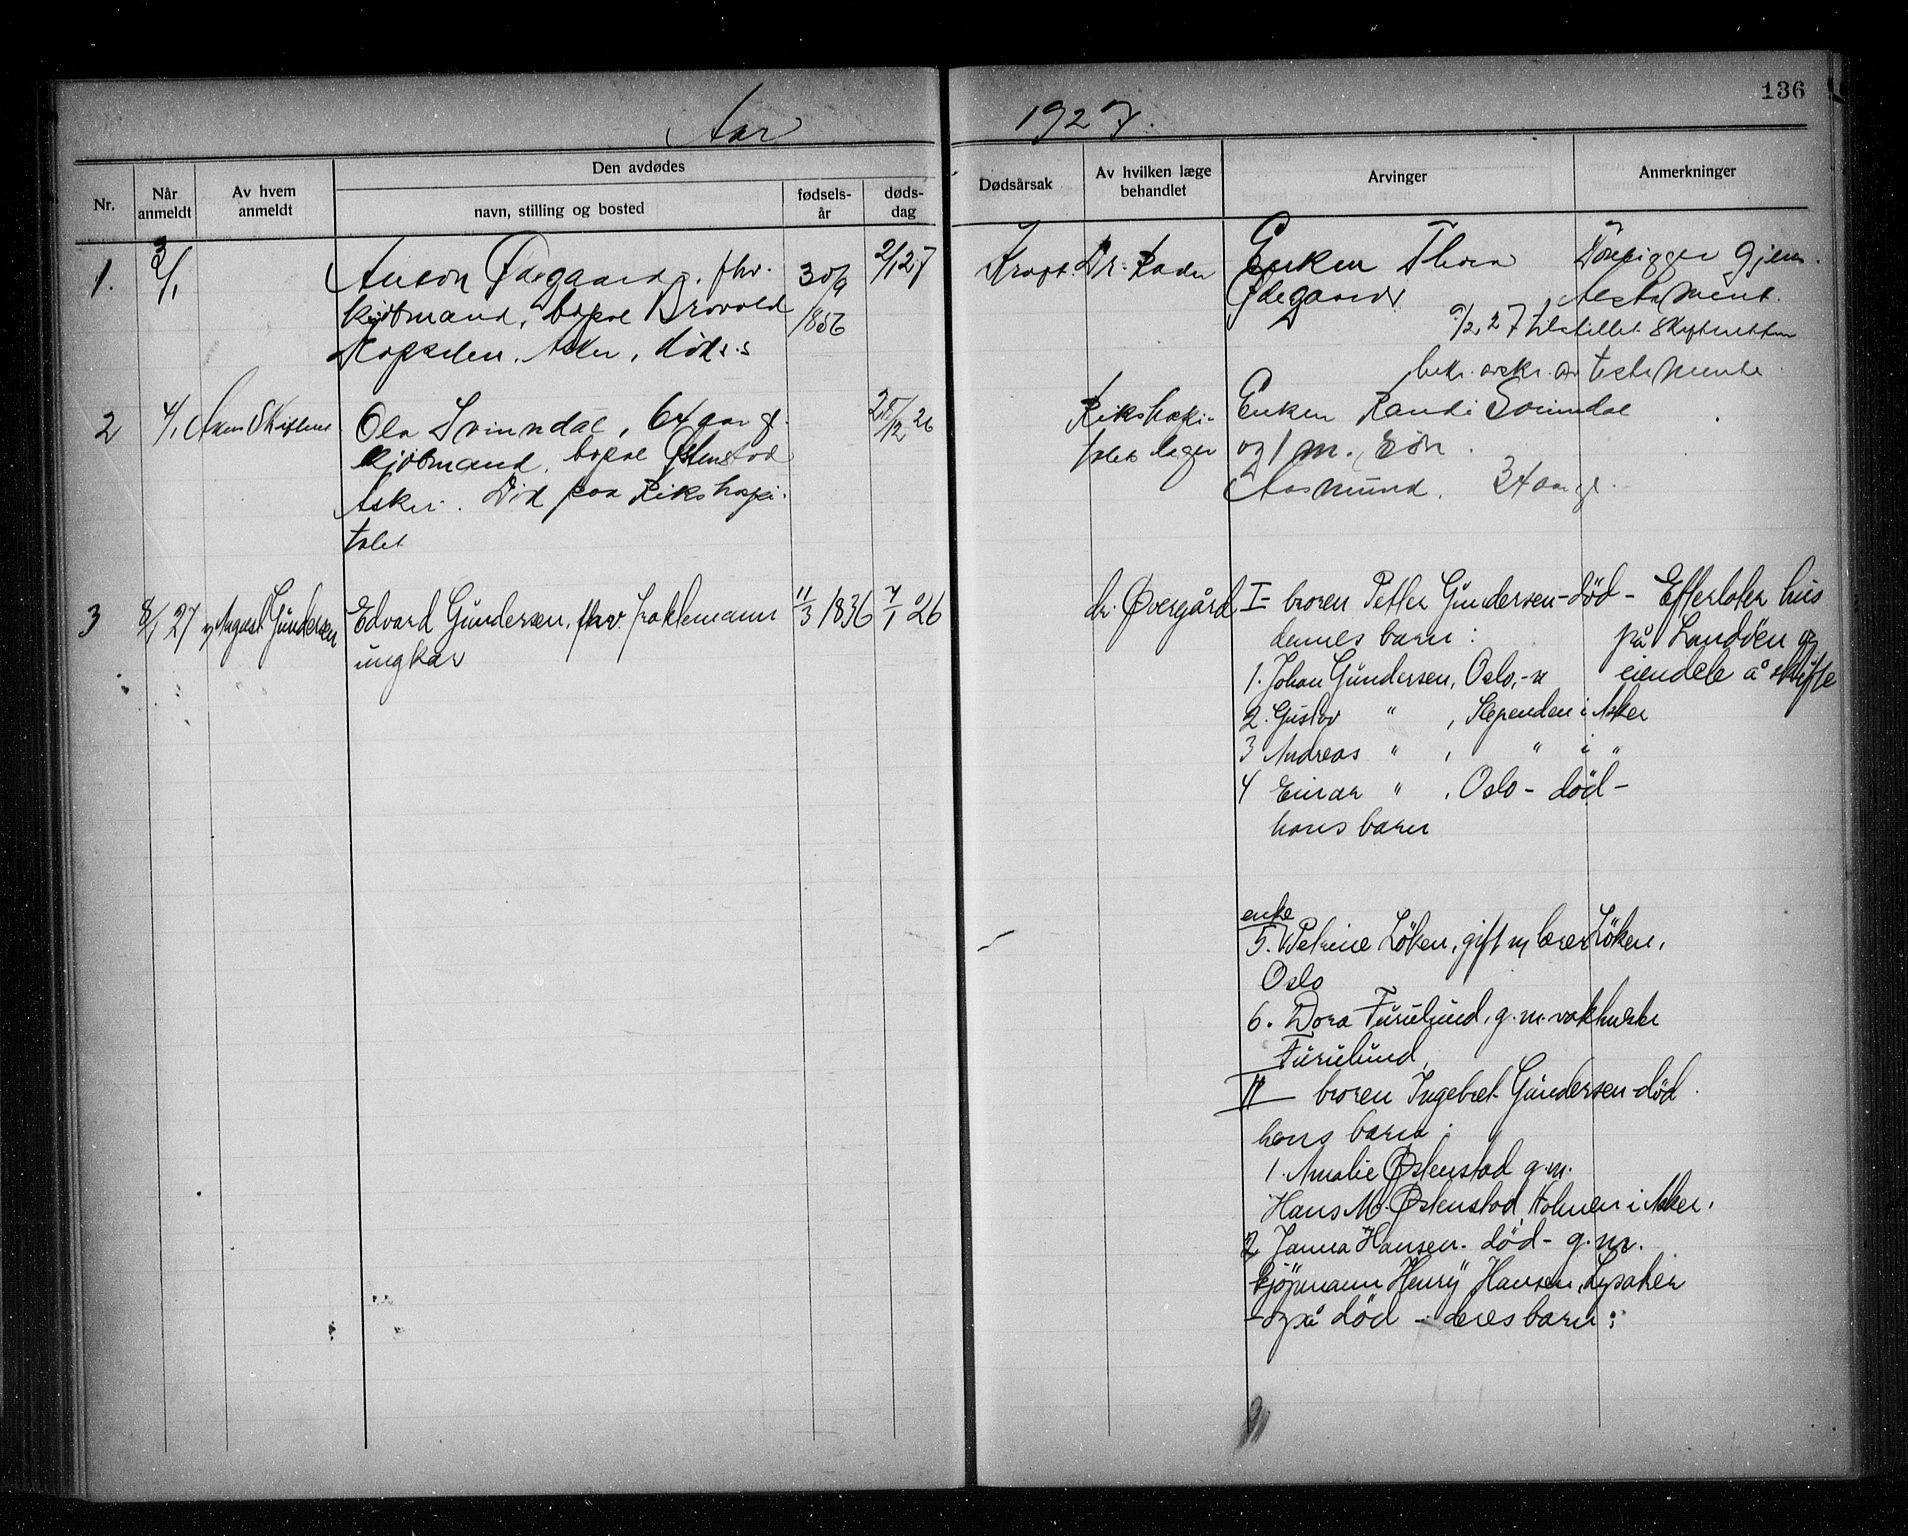 136
Aar 1927.
Nr.
Når anmeldt
Av hvem anmeldt
Den avdødes
navn, stilling og bosted
fødsels-
år
døds-
dag
Dødsårsak
Av hvilken læge
behandlet
Arvinger
Anmerkninger
1.
3/1
Anton Ødegaard, fhv.
kjøbmand, bopæl Brovold
Asker, død s.s
30/9
1856
2/1 27
Kræft
Dr. Rader
Enken Thora
Ødegaard
Gjens.
testament.
9/2 27 tilstillet Skifteretten
bekr. avskr. av testamente.
2
4/1
Aker Skifteret
Ola Svinndal, 64 aar gl.
kjøbmand, bopæl Østenstad
Asker. Død paa Rikshospi-
talet
/12 26
Rikshospi-
talets læger
Enken Randi Svinndal
og 1 m. søn
Aasmund, 34 aar gl.
3
8/1 27
v/ August Gundersen
Edvard Gundersen, fhv. fraktemann
ungkar
11/3 1836
7/1 26
dr. Øvergård
I - broren Petter Gundersen - død -
dennes barn:
1. Johan Gundersen, Oslo,
2. Gustav " , Slependen i Asker
3 Andreas " , " i "
4 Einar " , Oslo - død -
hans barn
Efterlater hus
på Landöen og
eiendele å skifte
enke
5. Petrine Löken, gift m/ lærer Löken,
Oslo
6. Dora Furulund, g.m.
Furulund,
II broren Ingebret Gundersen - död.
hans barn:
1. Amalie Østenstad g.m.
Hans M. Østenstad, Holmen i Asker.
2 Janna Hansen - død - g.m.
kjöpmann Henry Hansen, Lysaker
- også död - deres barn: